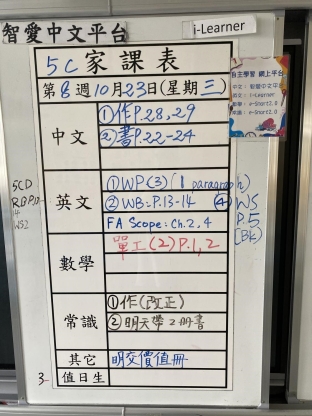 智愛中文平台
i-Learner
5C 家課表
第8週10月23日(星期三)
自主學習 網上平台
中文
①作P.28,29
②書P.22-24
英文
①WP(3)(1 paragraph)
②WB:P.13-14
④WS
P.5
(BK)
FA Scope: Ch.2,4
5CD
數學
單工(2)P.1,2
常識
①作(改正)
②明天帶2冊書
其它
明交價值冊
3-
值日生